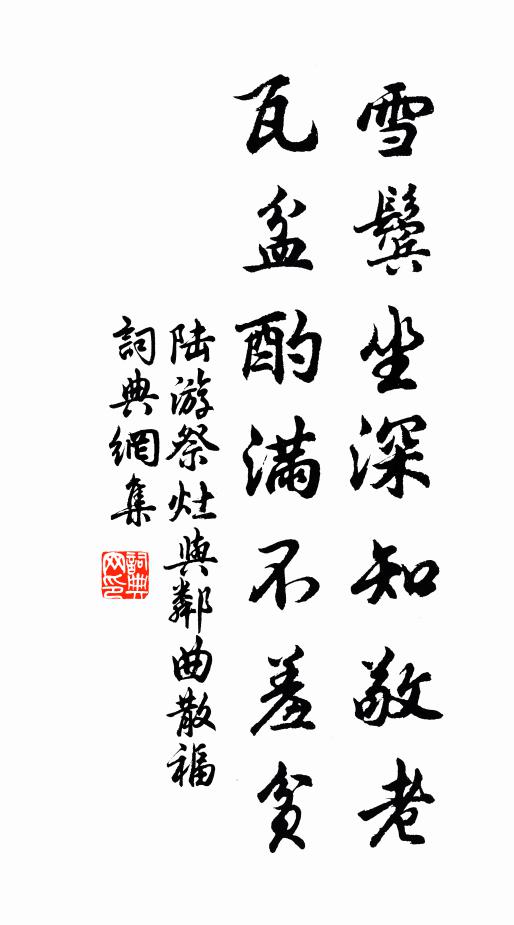 雪鬓坐深知敬老
瓦盆酌满不羞贫
陆游祭灶與鄰曲散福
詞典網集
詞典网印